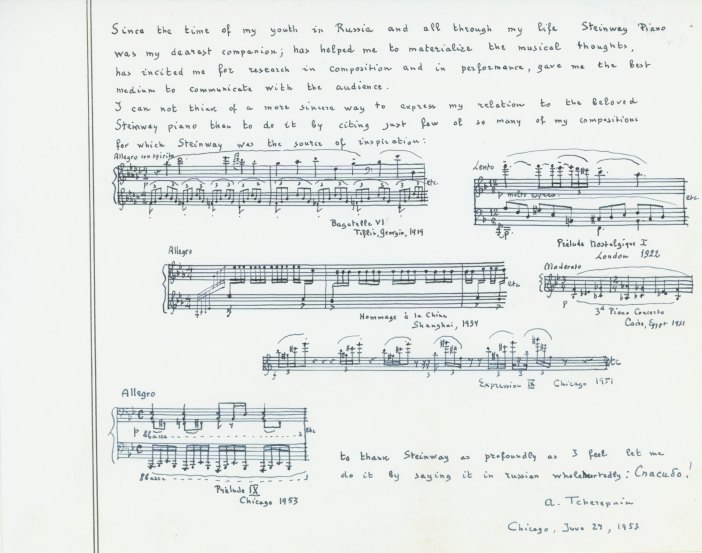 Since the time of my youth in Russia and all through my life Steinway Piano
was my dearest companion; has helped me to materialize the musical thoughts,
has incited me for research in composition and in performance, gave me the best
medium to communicate with the audience.
I can not think of a more sincere way to express my relation to the beloved
Steinway piano than to do it by citing just few of so many of my compositions
for which Steinway was the source of inspiration:
Allegro con spirito
p
etc.
Bagatelle VI
Tiflis, Georgia, 1919
Lento
p molto
etc.
Prélude Nostalgique I
London 1922
Allegro
etc
Hommage à la Chine
Shanghai, 1934
Moderato
p
etc
3d Piano Concerto
Cairo, Egypt 1931
f
etc
Expression IX Chicago 1951
Allegro
p 8bassa
etc.
8bassa
Prélude IX
Chicago 1953
to thank Steinway as profoundly as I feel let me
do it by saying it in russian wholehartedly: Спасибо!
A. Tcherepnin
Chicago, June 27, 1953